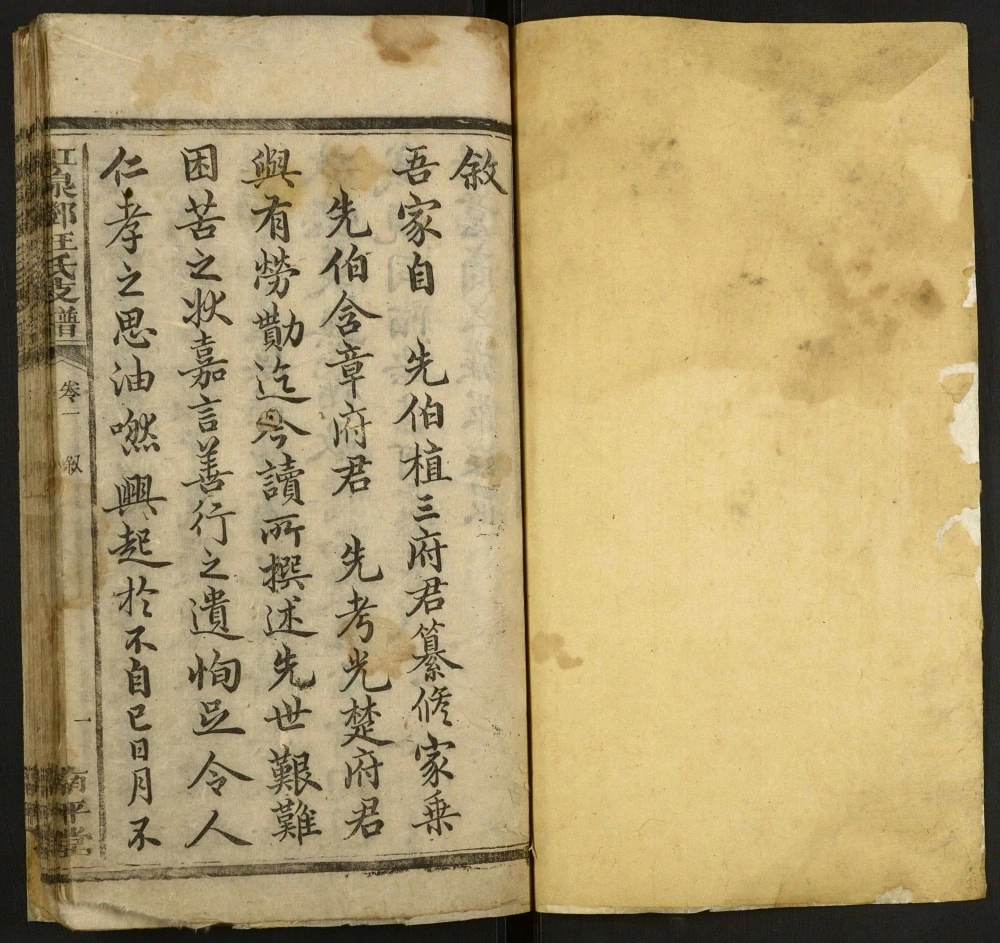 敘
吾家自　先伯植三府君纂修家乗
先伯含章府君　先考光楚府君
與有勞勩迄今讀所撰述先世艱難
困苦之狀嘉言善行之遺恂足令人
仁孝之思油然興起於不自已日月不
泉鄒汪氏支譜
卷一　叙
一
南平堂